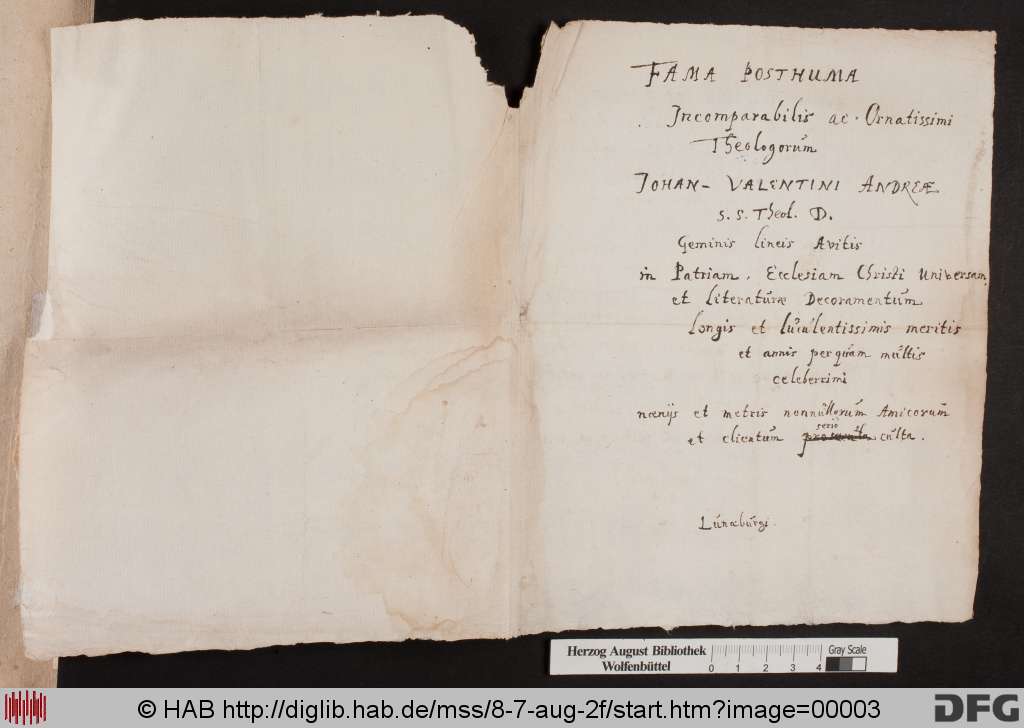 FAMA POSTHUMA
Incomparabilis ac Ornatissimi
Theologorum
JOHAN- VALENTINI ANDREÆ
S. S. Theol. D.
Geminis lineis Avitis
in Patriam, Ecclesiam Christi Universam,
et Literaturæ Decoramentum
longis et luculentissimis meritis
et annis perquam multis
celeberrimi
næniis et metris nonnullorum Amicorum
et clientum serio culta.
Lunæburgi.
Herzog August Bibliothek
Wolfenbüttel
0 1 2 3 4
Gray Scale
© HAB http://diglib.hab.de/mss/8-7-aug-2f/start.htm?image=00003
DFG